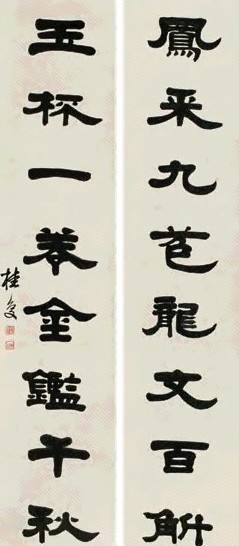 鳳采九苞龍文百斛
玉杯一卷金鑑千秋
桂馥